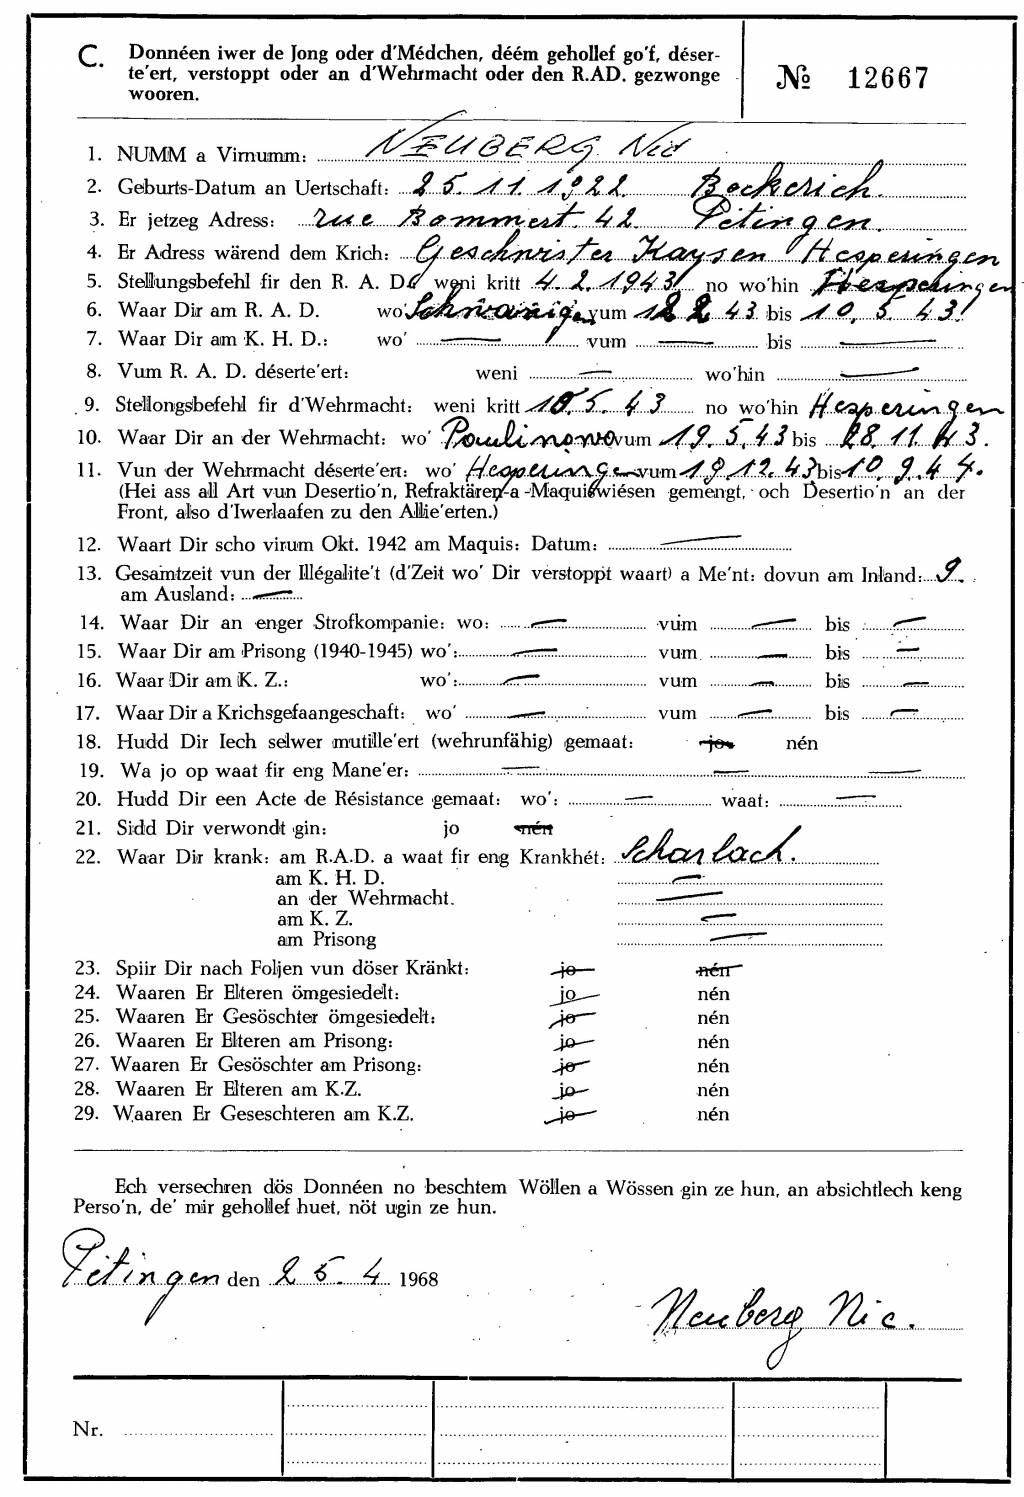 C. Donnéen iwer de Jong oder d'Médchen, déém gehollef go'f, déser-
te'ert, verstoppt oder an d'Wehrmacht oder den R.AD. gezwonge
wooren.
№ 12667
1. NUMM a Virnumm: NEUBERG Nic
2. Geburts-Datum an Uertschaft: 25.11.1922 Beckerich.
3. Er jetzeg Adress: rue Bommert. 42. Pétingen.
4. Er Adress wärend dem Krich: Geschwister Kaysen Hesperingen
5. Stellungsbefehl fir den R. A. D. weni kritt 4.2.1943 no wo'hin Hesperingen
6. Waar Dir am R. A. D. wo' vum 12 2 43 bis 10. 5. 43.
7. Waar Dir am K. H. D.: wo' — vum — bis —
8. Vum R. A. D. déserte'ert: weni — wo'hin —
9. Stellongsbefehl fir d'Wehrmacht: weni kritt 10.5.43 no wo'hin Hesperingen
10. Waar Dir an der Wehrmacht: wo' Paulinowo vum 19.5.43 bis 28.11.43.
11. Vun der Wehrmacht déserte'ert: wo' Hesperingen vum 19.12.43 bis 10.9.44.
(Hei ass all Art vun Desertio'n, Refraktären-a -Maquiswiésen gemengt, och Desertio'n an der
Front, also d'Iwerlaafen zu den Allie'erten.)
12. Waart Dir scho virum Okt. 1942 am Maquis: Datum: —
13. Gesamtzeit vun der Illégalite't (d'Zeit wo' Dir verstoppt waart) a Me'nt: dovun am Inland: 9.
am Ausland: —
14. Waar Dir an enger Strofkompanie: wo: — vum — bis —
15. Waar Dir am Prisong (1940-1945) wo': — vum — bis —
16. Waar Dir am K. Z.: wo': — vum — bis —
17. Waar Dir a Krichsgefaangeschaft: wo' — vum — bis —
18. Hudd Dir Iech selwer mutille'ert (wehrunfähig) gemaat: jo nén
19. Wa jo op waat fir eng Mane'er: — — —
20. Hudd Dir een Acte de Résistance gemaat: wo': — waat: —
21. Sidd Dir verwondt gin: jo nén
22. Waar Dir krank: am R.A.D. a waat fir eng Krankhét: Scharlach.
am K. H. D. —
an der Wehrmacht. —
am K. Z. —
am Prisong —
23. Spiir Dir nach Foljen vun döser Kränkt: jo nén
24. Waaren Er Elteren ömgesiedelt: jo nén
25. Waaren Er Gesöschter ömgesiedelt: jo nén
26. Waaren Er Elteren am Prisong: jo nén
27. Waaren Er Gesöschter am Prisong: jo nén
28. Waaren Er Elteren am K.Z. jo nén
29. Waaren Er Geseschteren am K.Z. jo nén
Ech versechren dös Donnéen no beschtem Wöllen a Wössen gin ze hun, an absichtlech keng
Perso'n, de' mir gehollef huet, nöt ugin ze hun.
Pétingen den 25. 4. 1968
Neuberg Nic.
Nr.